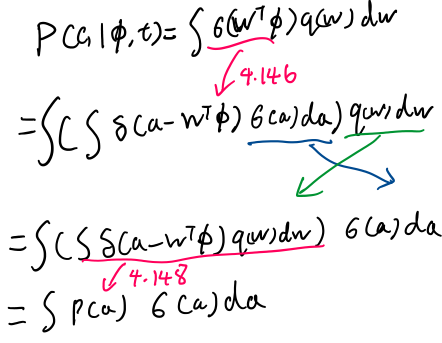 P(C₁|ϕ,t) = ∫ σ(wᵀϕ) q(w) dw
4.146
= ∫ ( ∫ δ(a-wᵀϕ) σ(a) da ) q(w) dw
= ∫ ( ∫ δ(a-wᵀϕ) q(w) dw ) σ(a) da
4.148
= ∫ P(a) σ(a) da